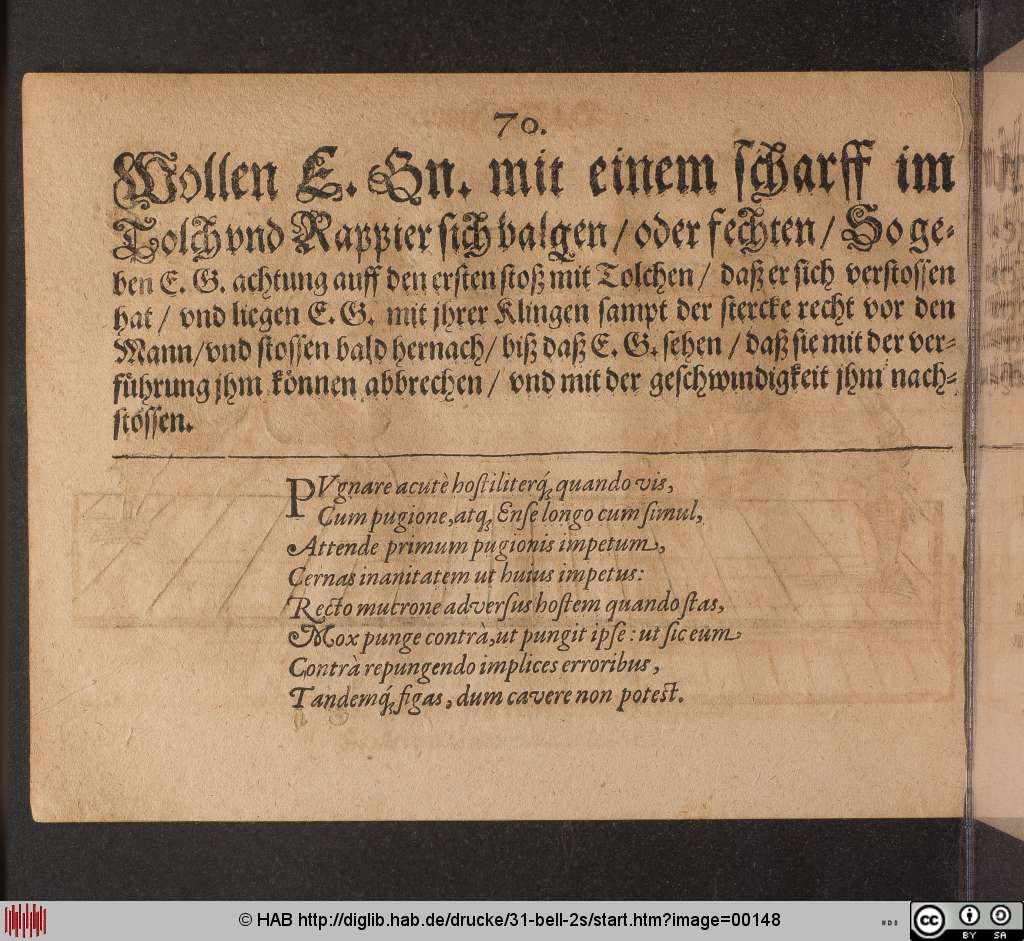 70.
Wollen E. Gn. mit einem scharff im
Tolch vnd Rappier sich balgen / oder fechten / So ge-
ben E. G. achtung auff den ersten stoß mit Tolchen / daß er sich verstossen
hat / vnd liegen E. G. mit jhrer Klingen sampt der stercke recht vor den
Mann / vnd stossen bald hernach / biß daß E. G. sehen / daß sie mit der ver-
führung jhm können abbrechen / vnd mit der geschwindigkeit jhm nach-
stossen.
PVgnare acutè hostiliterq́; quando vis,
Cum pugione, atq; Ense longo cum simul,
Attende primum pugionis impetum,
Cernas inanitatem ut huius impetus:
Recto mucrone adversus hostem quando stas,
Mox punge contrà, ut pungit ipse: ut sic eum
Contrà repungendo implices erroribus,
Tandemq́; figas, dum cavere non potest.
© HAB http://diglib.hab.de/drucke/31-bell-2s/start.htm?image=00148
cc BY SA